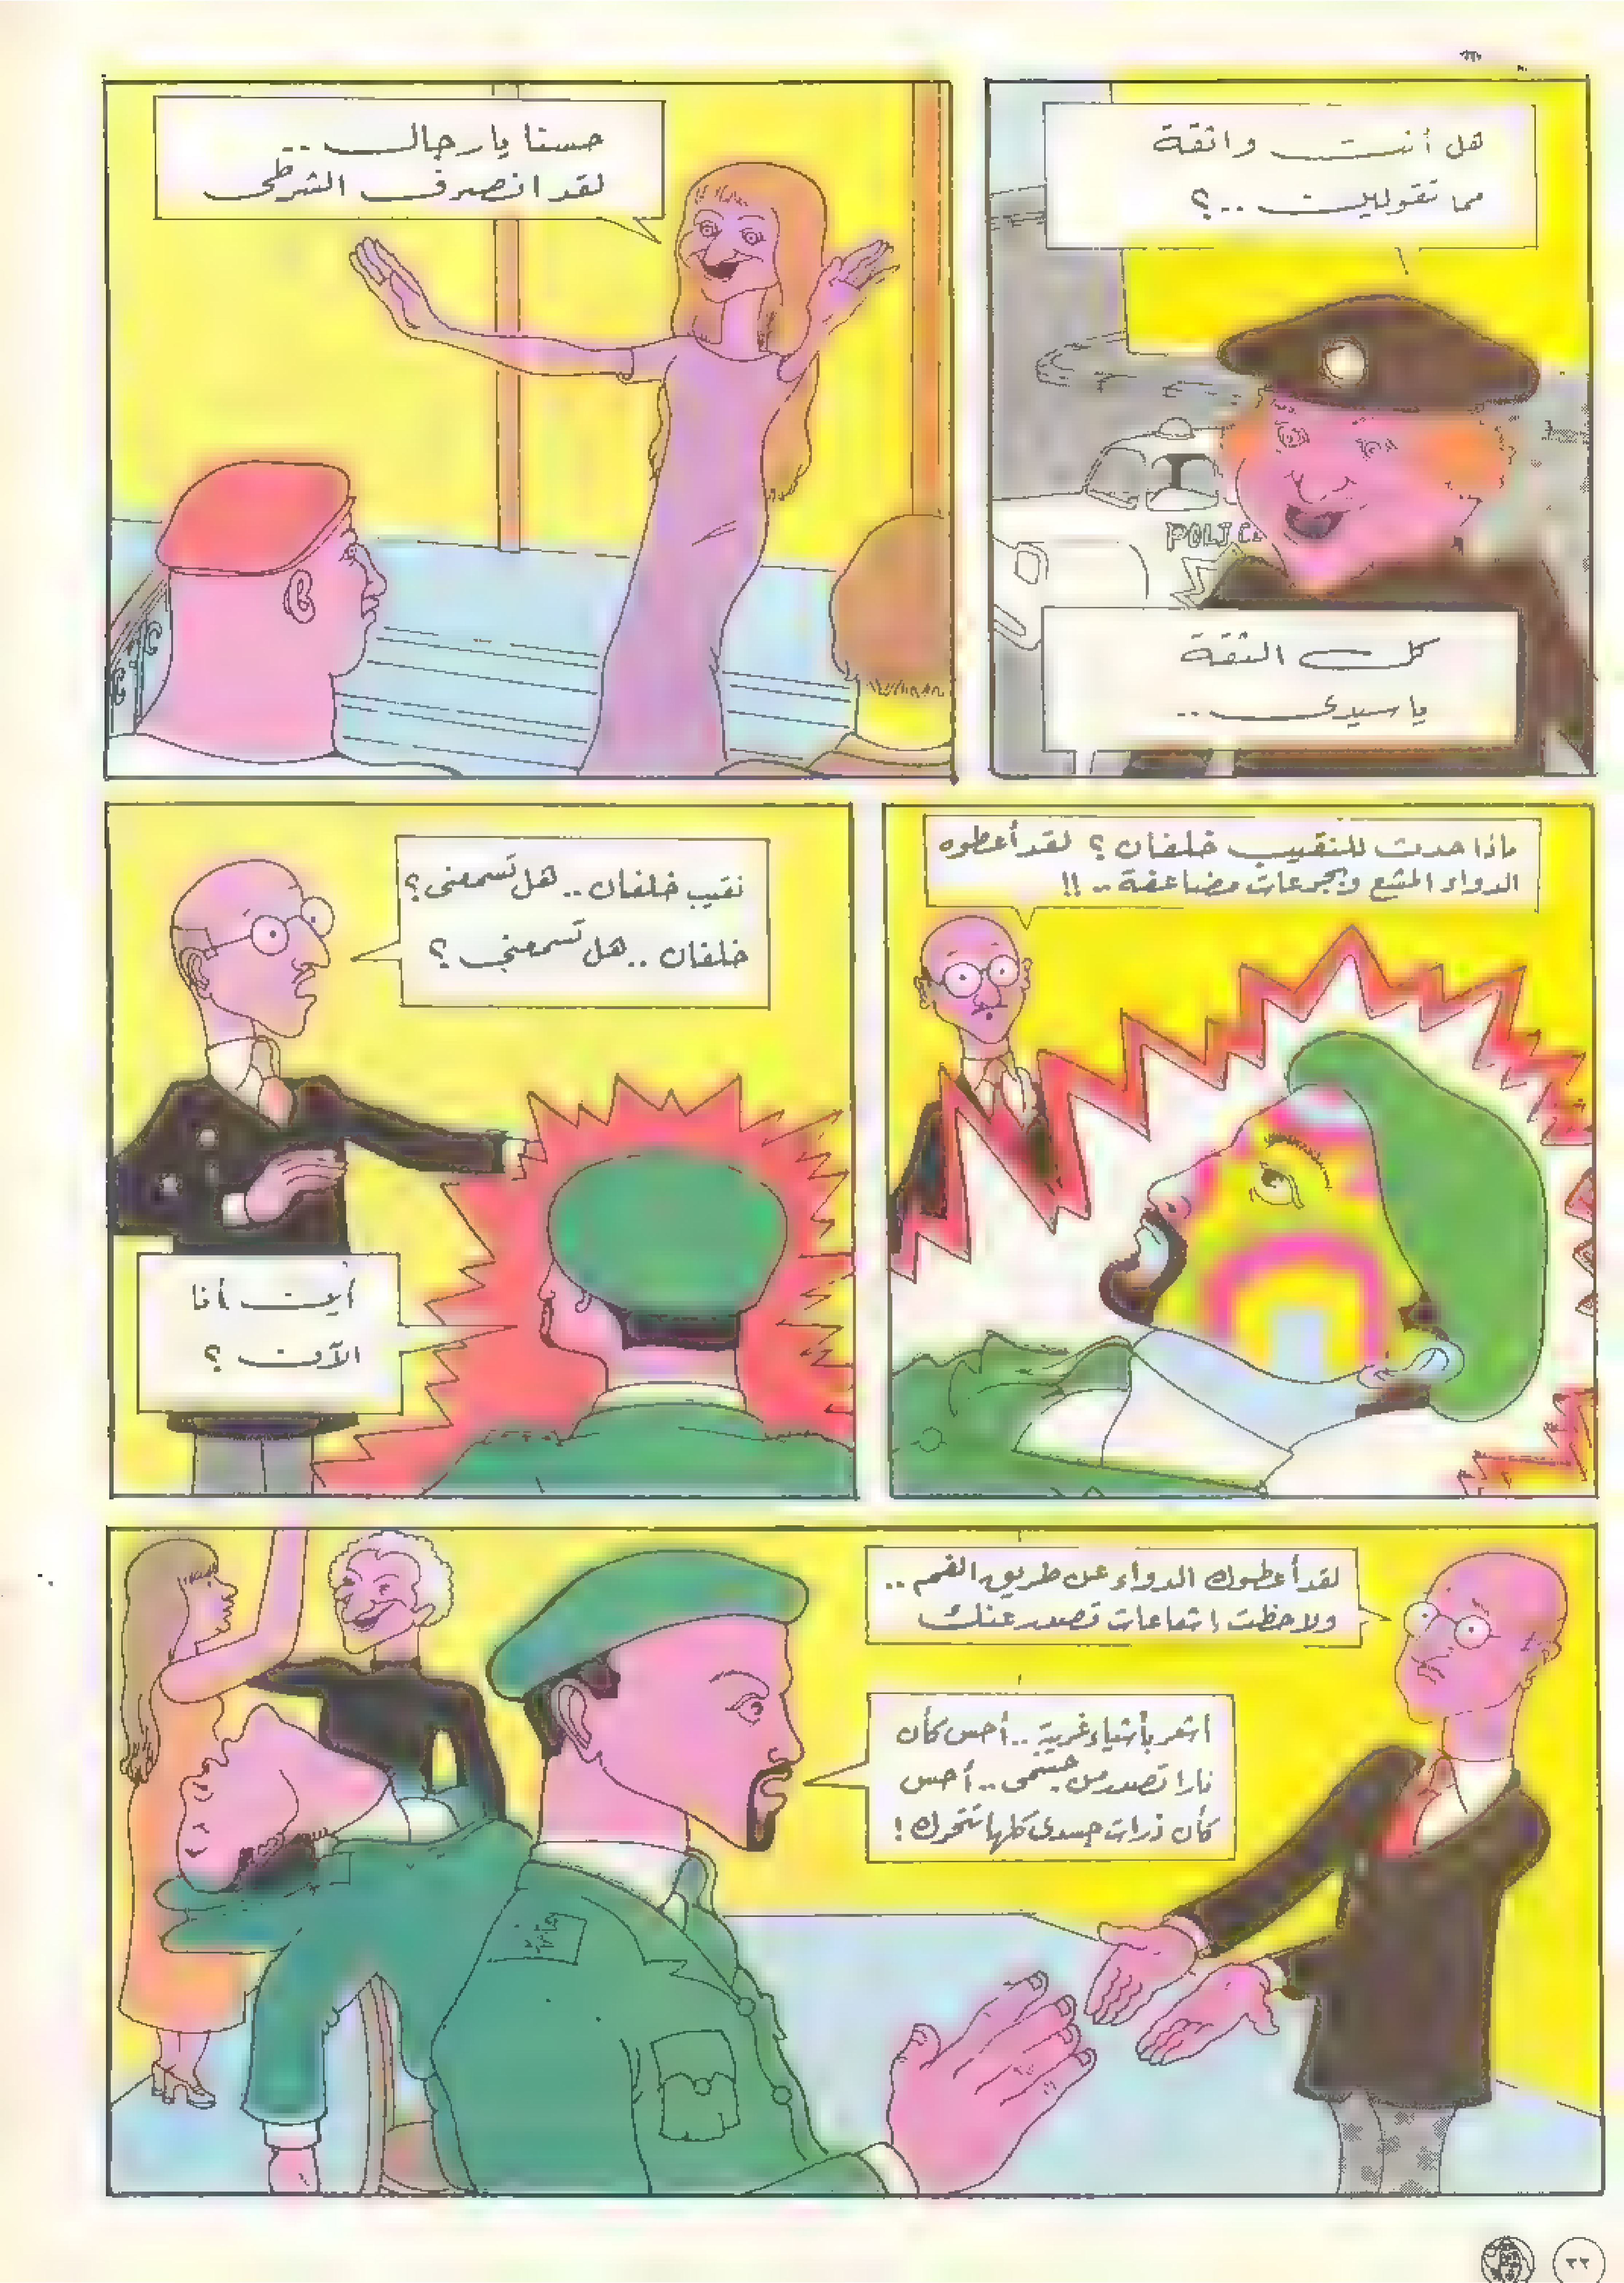 هل أنت واثقة
مما تقولين ..؟
POLICE
كل الثقة
يا سيدى ..
حسنا يا رجال ..
لقد انصرف الشرطى
ماذا حدث للنقيب خلفان ؟ لقد أعطوه
الدواء المشع وبجرعات مضاعفة .. !!
نقيب خلفان .. هل تسمعنى ؟
خلفان .. هل تسمعني ؟
أين أنا
الآن ؟
لقد أعطوك الدواء عن طريق الفم ..
ولاحظت اشعاعات تصدر عنك
أشعر بأشياء غريبة .. أحس كأن
نارا تصدر من جسمى .. أحس
كأن ذرات جسدى كلها تتحرك !
٢٢